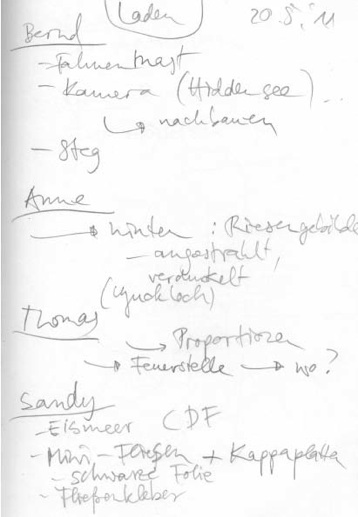 Laden 20.5.'11
Bernd
- Fahnenmast
- Kamera (Hiddensee)...
nachbauen
- Steg
Anne
→ hinten : Riesengebilde
- angestrahlt,
verdunkelt
(Guckloch)
Thomas
→ Proportionen
→ Feuerstelle → wo?
Sandy
- Eismeer CDF
- Mini-Fliesen + Kappaplatte
- schwarze Folie
- Fließenkleber